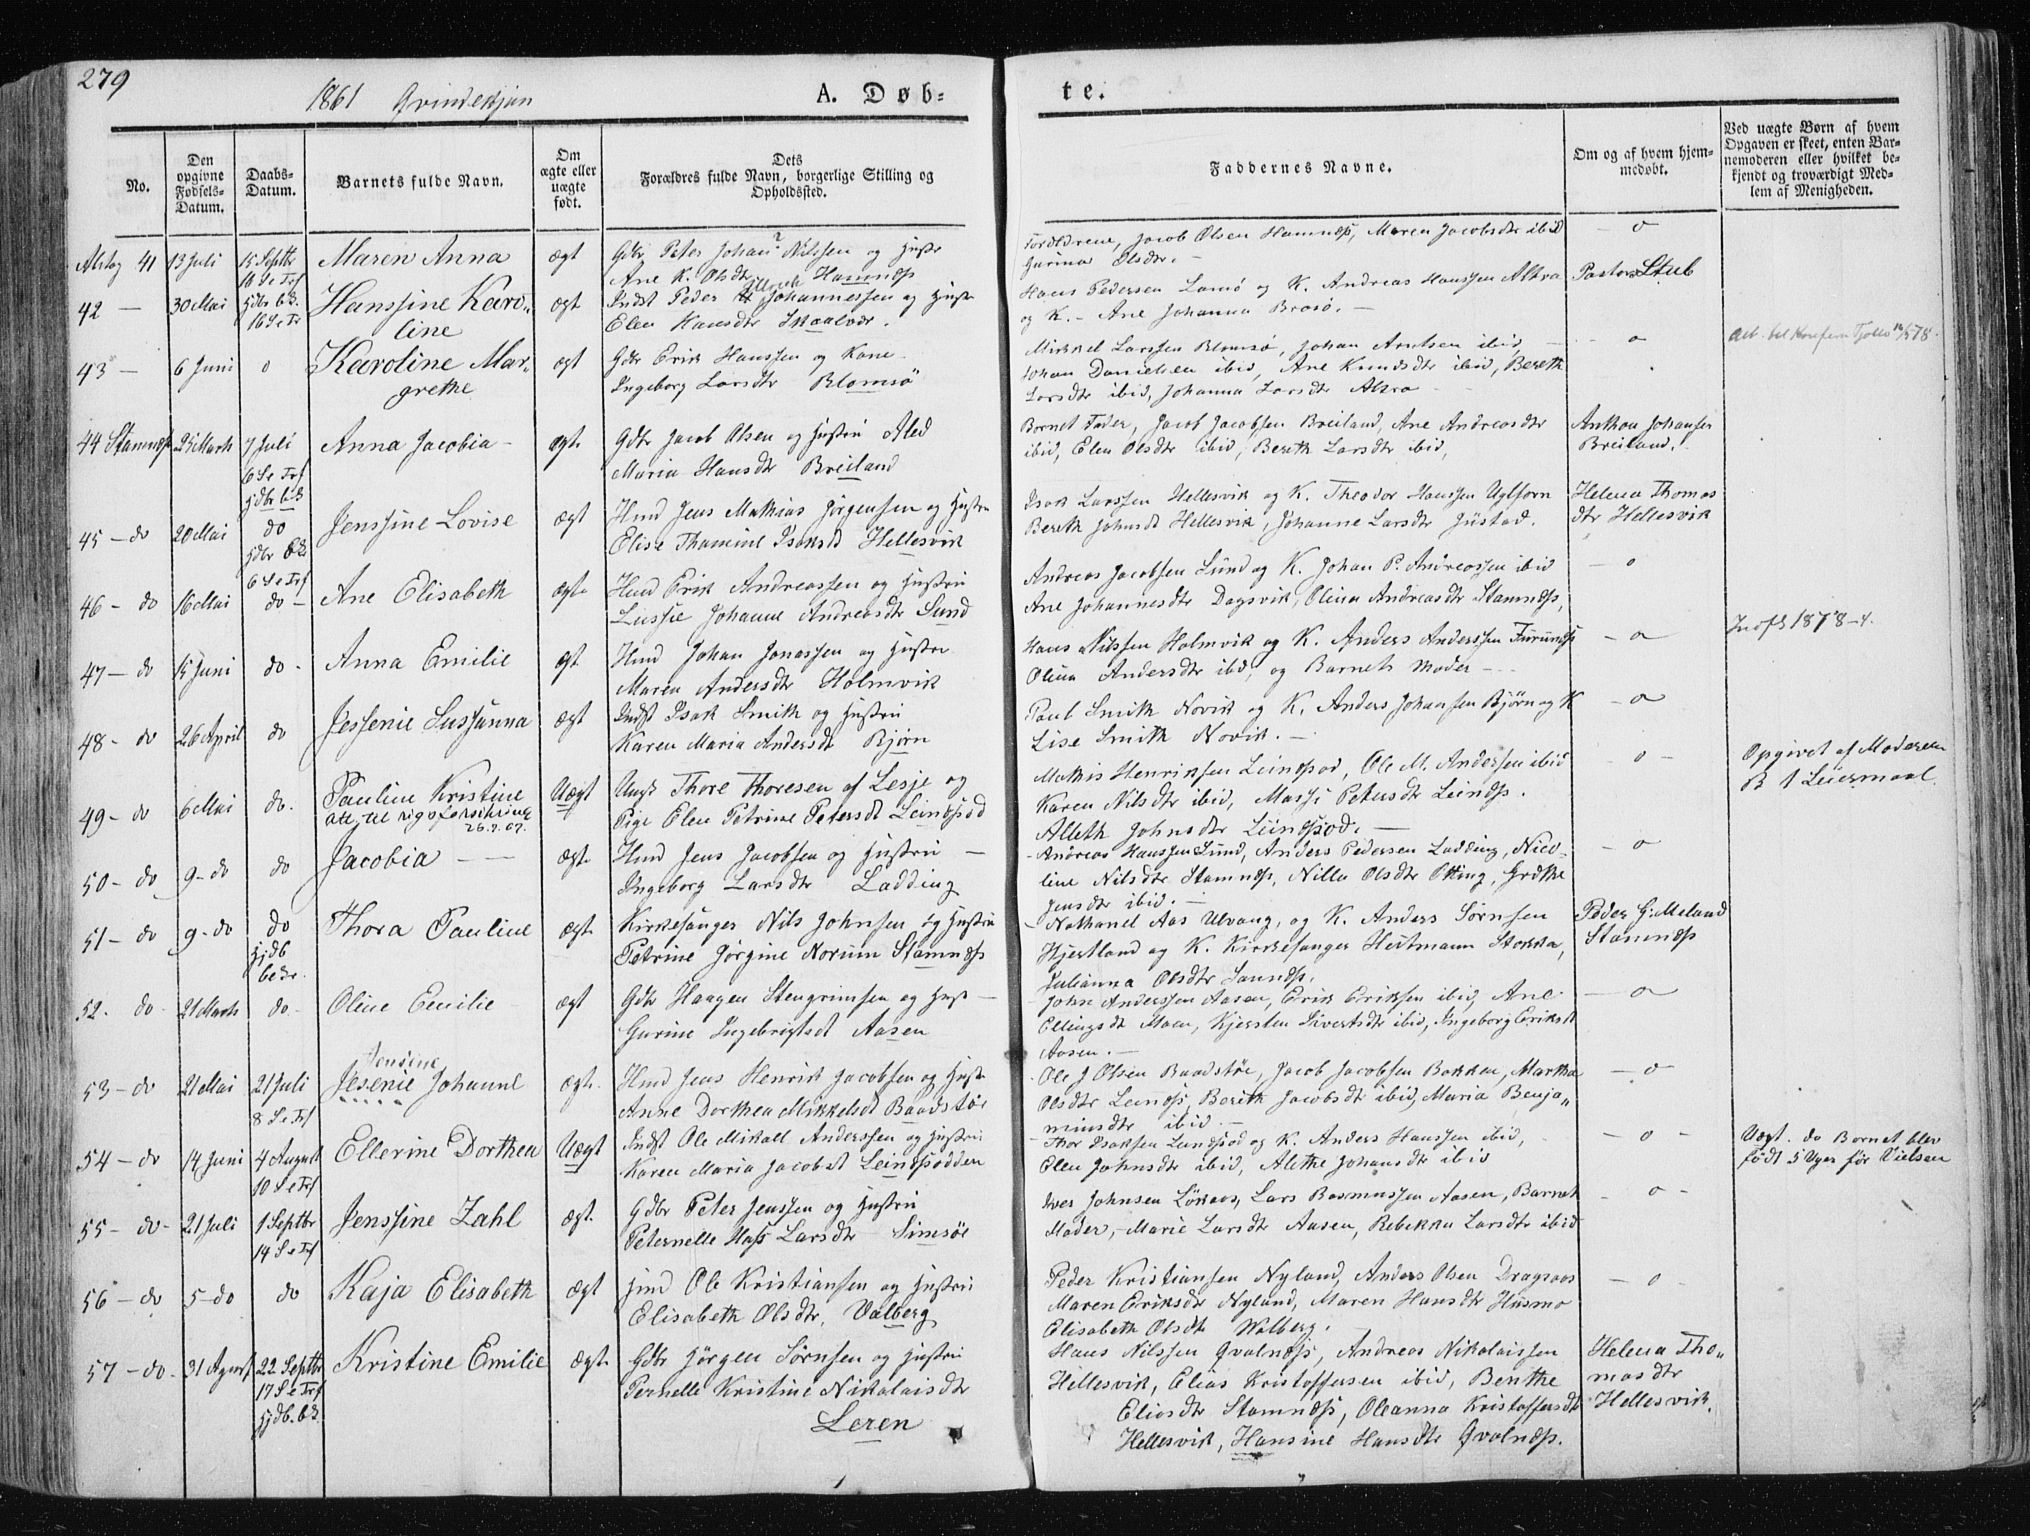 279
1861 Qvindekjøn
A. Døb-
te.
No.
Den opgivne Fødsels-Datum.
Daabs-Datum.
Barnets fulde Navn.
Om ægte eller uægte født.
Dets Forældres fulde Navn, borgerlige Stilling og Opholdssted.
Faddernes Navne.
Om og af hvem hjem-
medøbt.
Ved uægte Børn af hvem
Opgaven er skeet, enten Bar-
nemoderen eller hvilket be-
kjendt og troværdigt Med-
lem af Menigheden.
41 13 Juli 15 Septbr Maren Anna ægt Gdbr Peter Johan Nilssen og Hustr
Ane K. Olsdtr Hamnæs
Forældrene, Jacob Olsen Hamnæs, Maren Jacobsdtr ibid
Olsdtr. -
42 - 30 Mai Hanssine Karo-
line ægt Indst Peder Johannessen og Hustr
Elen Hansdtr Skaalvær.
Hans Pedersen Lamø og K. Andreas Hanssen Altra
og K. - Ane Johanna Brasø. -
Pastor Stub
43 - 6 Juni o Karoline Mar-
grethe ægt Gdbr Erik Hanssen og Kone
Ingeborg Larsdtr Blomsø
Mikkel Larssen Blomsø, Johan Arntsen ibid
Johan Danielsen ibid, Ane Knudsdtr ibid, Bereth
Larsdtr ibid, Johanna Larsdtr Altra
o
44 Stamnæs 25 Marts 7 Juli
6 S e Trf Anna Jacobia - ægt Gdbr Jacob Olsen og Hustru Aled
Maria Hansdtr Breiland
Barnets Fader, Jacob Jacobsen Breiland, Ane Andreasdtr
ibid, Elen Olsdtr ibid, Bereth Larsdtr ibid,
Johanses
Breiland.
45 - do 20 Mai do Jenssine Lovise ægt Hmd Jens Mathias Jørgensen og Hustru
Elise Thamine Isaksd Hellesvik
Isak Larssen Hellesvik og K. Theodor Hanssen
Bereth Johnsdt Hellesvik, Johanne Larsdtr Justad.
Helena Thomas
dtr Hellesvik
46 - do 16 Mai do - Ane Elisabeth ægt Hmd Erik Andreassen og Hustru
Lussie Johanne Andreasdtr Sund
Andreas Jacobsen Sund og K. Johan P. Andreassen ibid
Ane Johannesdtr Dagsvik, Olina Andreasdtr Stamnæs,
- o
47 - do 15 Juni do - Anna Emilie ægt Hmd Johan Jonassen og Hustru
Maren Andersdtr Holmvik
Hans Nilssen Holmvik og K. Anders Anderssen Furunæs
Olina Andersdtr ibd, og Barnets Moder -
- o
1878 - 4.
48 - do 26 April do Jessenie Sussanna ægt Indst Isak Smith og Hustru
Karen Maria Andersdt Bjørn
Paul Smith Novik og K. Anders Johansen Bjørn og K
Lise Smith Novik. -
- o
49 - do 6 Mai do. Pauline Kristine Uægt Ungk Thore Thoresen af Lesje og
26.9.07. Pige Elen Petrine Petersdt Leinæsod
Mathis Henriksen Leinæsod, Ole M. Andersen ibid
Karen Nilsdtr ibid, Massi Petersdtr Leinæs.
Alleth Johnsdtr Leinæsod. -
- o -
Opgivet af Moderen
1 Leiermaal
50 - do 9 - do do Jacobia - - ægt Hmd Jens Jacobsen og Hustru -
Ingeborg Larsdtr Ladding
Andreas Hanssen Sund, Anders Pedersen Ladding, Nico-
line Nilsdtr Stamnæs, Nilla Olsdtr Etting, Grethe
Jensdtr ibid. -
- o
51 - do 9 - do do Thora Pauline ægt Kirkesanger Nils Johnsen og Hustru
Petrine Jørgine Norum Stamnæs
Nathanel Aas Ulvang, og K. Anders Sørnsen
Hjertland og K. Kirkesanger Hertmann Stokka,
Julianna Olsdtr Sannæs.
Peder G. Meland
Stamnæs
52. do 21 Marts do - Oline Emilie ægt Gdbr Haagen Stengrimsen og Hust -
Gurine Ingebrigtsdt Aasen
John Anderssen Aasen, Erik Eriksen ibid, Ane
Ellingsdt Moen, Kjersten Sivertsdtr ibid, Ingeborg Eriksdt
Aasen. -
- o
53 - do 21 Mai 21 Juli
8 S e Trf Jensine
Jesenie Johanne ægt. Hmd Jens Henrik Jacobsen og Hustr
Anne Dorthea Mikkelsdt Baadstøe
Ole J Olsen Baadstøe, Jacob Jacobsen Bakken, Martha
Olsdtr Leinæs, Bereth Jacobsdt ibid, Maria Benja-
minsdtr ibid -
- o
54 - do 14 Juni 4 August
10 S e Trf Ellerine Dorthea Uægt Indst Ole Mikall Anderssen og Hustru
Karen Maria Jacobsdt Leinæsodden
Thor Isaksen Leinæsod og K. Anders Hanssen ibid,
Olea Johnsdtr ibid, Alethe Johansdtr ibid
- o -
Uægt. da Barnet blev
født 5 Uger før Vielsen
55 - do - 21 Juli 1 Septbr
14 S e Trf Jenssine Zahl ægt. Gdbr Peter Jenssen og Hustru
Peternelle Hass Larsdtr Simsøe
Iver Johnsen Løkaas, Lars Rasmussen Aasen, Barnets
Moder, Marie Larsdtr Aasen, Rebekka Larsdtr ibid
- o -
56 - do 5 - do do Kaja Elisabeth ægt Hmd Ole Kristiansen og Hustru
Elisabeth Olsdtr, Valberg
Peder Kristiansen Nyland, Anders Olsen Dragaas
Maren Eriksdtr Nyland, Maren Hansdtr Husmo
Elisabeth Olsdtr Valberg.
- o -
57 - do. 31 August 22 Septbr
17 S e Trf Kristine Emilie ægt. Gdbr Jørgen Sørnsen og Hustru
Pernelle Kristine Nikolaisdtr
Leren
Hans Nilssen Qvalnæs, Andreas Nikolaissen
Hellesvik, Elias Kristoffersen ibid, Benthe
Eliasdtr Stamnæs, Oleanna Kristoffersdt
Hellesvik, Hansine Hansdtr Qvalnæs.
Helena Tho-
masdtr
Hellesvik.